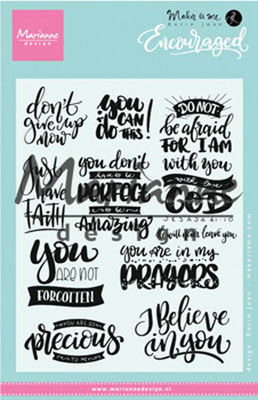 Marianne
design
Make is me
Karin Joan
Encouraged
don't
give up
now
you
can
do
this!
DO NOT
be afraid
FOR I AM
with you
just
have
FAITH
you don't
have to be
PERFECT
to be
Amazing
GOD
JESAJA 41:10
He will never leave you
YOU
ARE NOT
FORGOTTEN
you are in my
PRAYERS
YOU ARE SO
precious
I Believe
in you
Marianne
design
design · Karin Joan · makerisme.com
www.mariannedesign.nl